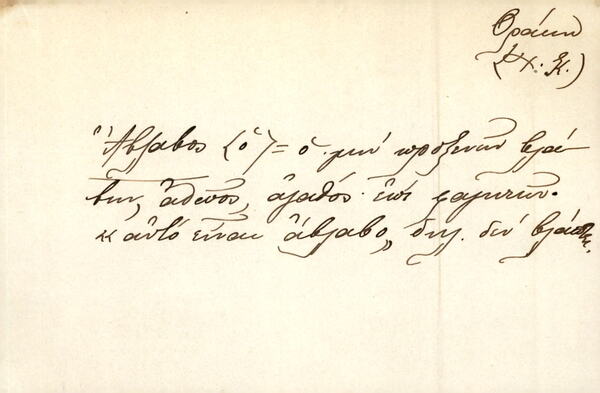 Θράκη
(Σχ. Ἐκ.)
Ἄβλαβος (ὁ) = ὁ μὴ προξενῶν βλά-
βην, ἀθῶος, ἀγαθός· ἐπὶ φαγητῶν.
"αὐτὸ εἶναι ἄβλαβο", δηλ. δὲν βλάπτει.